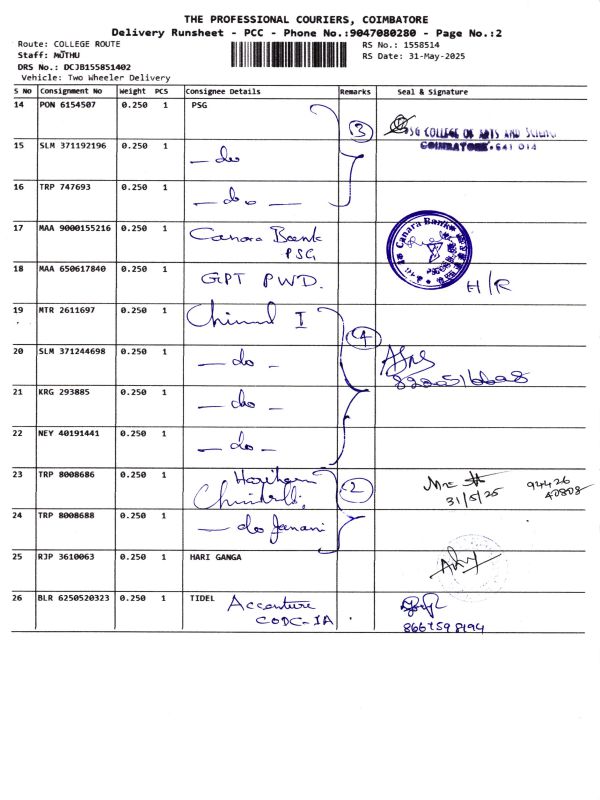 THE PROFESSIONAL COURIERS, COIMBATORE
Delivery Runsheet - PCC - Phone No.:9047080280 - Page No.:2
Route: COLLEGE ROUTE
RS No.: 1558514
Staff: MUTHU
RS Date: 31-May-2025
DRS No.: DCJB155851402
Vehicle: Two Wheeler Delivery
S NO Consignment No Weight PCS Consignee Details Remarks Seal & Signature
14 PON 6154507 0.250 1 PSG 3
PSG COLLEGE OF ARTS AND SCIENCE
COIMBATORE-641 014
15 SLM 371192196 0.250 1 - do
16 TRP 747693 0.250 1 - do -
17 MAA 9000155216 0.250 1 Canara Bank
PSG
Canara Bank
18 MAA 650617840 0.250 1 GPT PWD. H/R
19 MTR 2611697 0.250 1 I 4
20 SLM 371244698 0.250 1 - do -
21 KRG 293885 0.250 1 - do -
22 NEY 40191441 0.250 1 - do -
23 TRP 8008686 0.250 1 2
31/5/25
94426
40808
24 TRP 8008688 0.250 1 - do Janani
25 RJP 3610063 0.250 1 HARI GANGA
26 BLR 6250520323 0.250 1 TIDEL Accenture
CODC-IA
8667598194